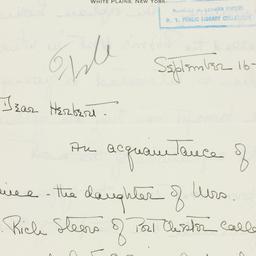 WHITE PLAINS, NEW YORK.
N. Y. PUBLIC LIBRARY COLLECTION
File
September 16-
Dear Herbert.
An acquaintance of
mine - the daughter of Mrs.
Rich Steers of Port Chester calle